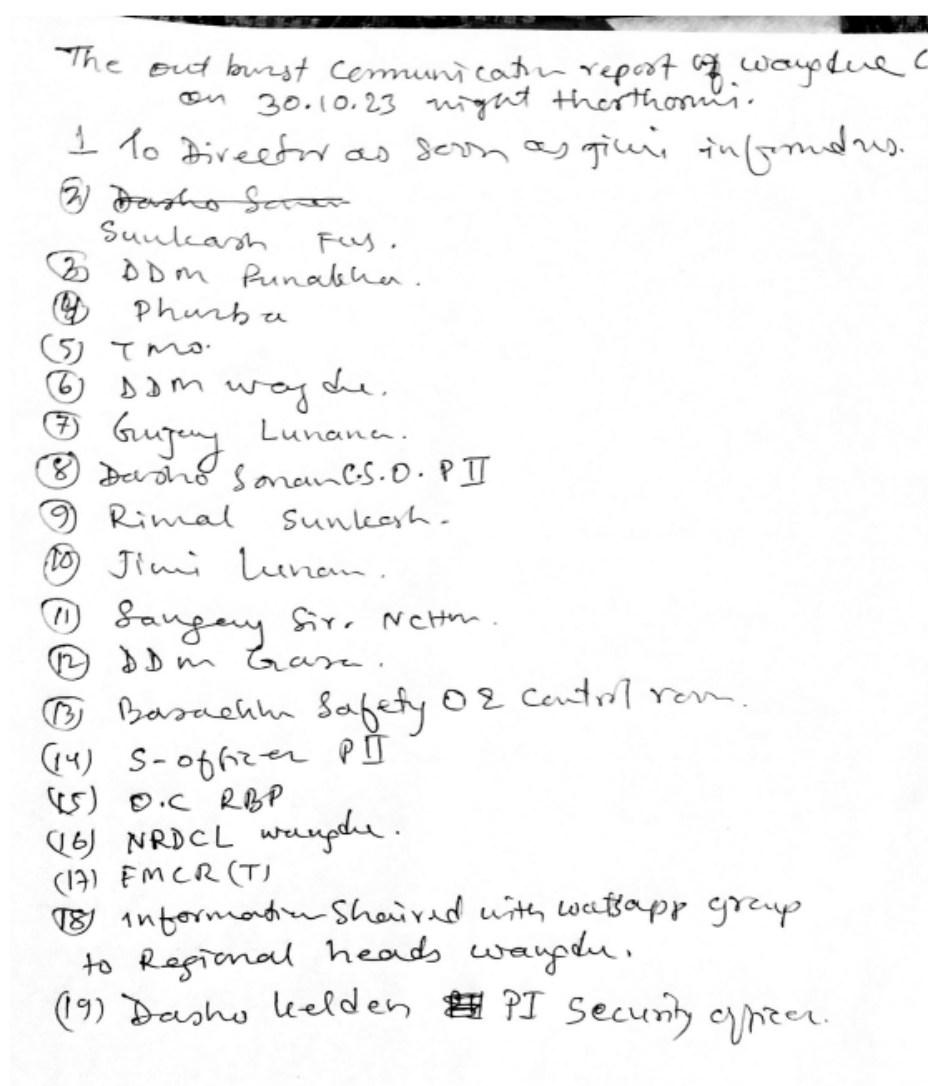 The out burst Communication report of wangdue C
on 30.10.23 night thorthormi.
1 To Director as soon as Jimi informed us.
(2) Dasho Sonam
Sunkosh Fws.
(3) DDM Punakha.
(4) Phurba
(5) TMO.
(6) DDM wangdue.
(7) Lunana.
(8) Dasho Sonam C.S.O. P II
(9) Rimal Sunkosh.
(10) Jimi Lunana.
(11) Sangay Sir. NCHM.
(12) DDM Gasa.
(13) Basochhu Safety O & Control room.
(14) S-officer P II
(15) O.C RBP
(16) NRDCL wangdue.
(17) FMCR(T)
(18) information Shaired with watsapp group
to Regional heads wangdue.
(19) Dasho kelden PI Security officer.